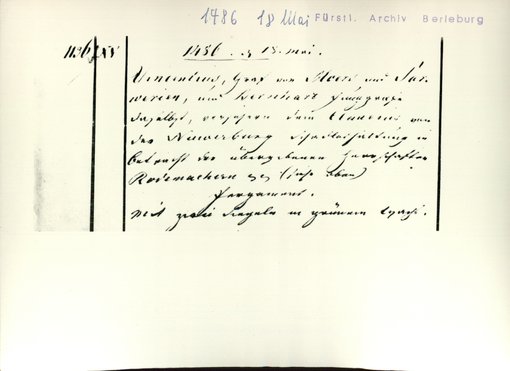 1486 18 Mai Fürstl. Archiv Berleburg
1486. 18. mai.
Vincentius, Graf von Moers und Sar-
werden, und Bernhart
daselbst, versichern dem Claudius von
der Nuwerburg Schadloshaltung in
betracht der übergebenen Herrschaften
Rodemachern (siehe oben)
Pergament.
Mit zwei Siegeln in grünem Wachs.